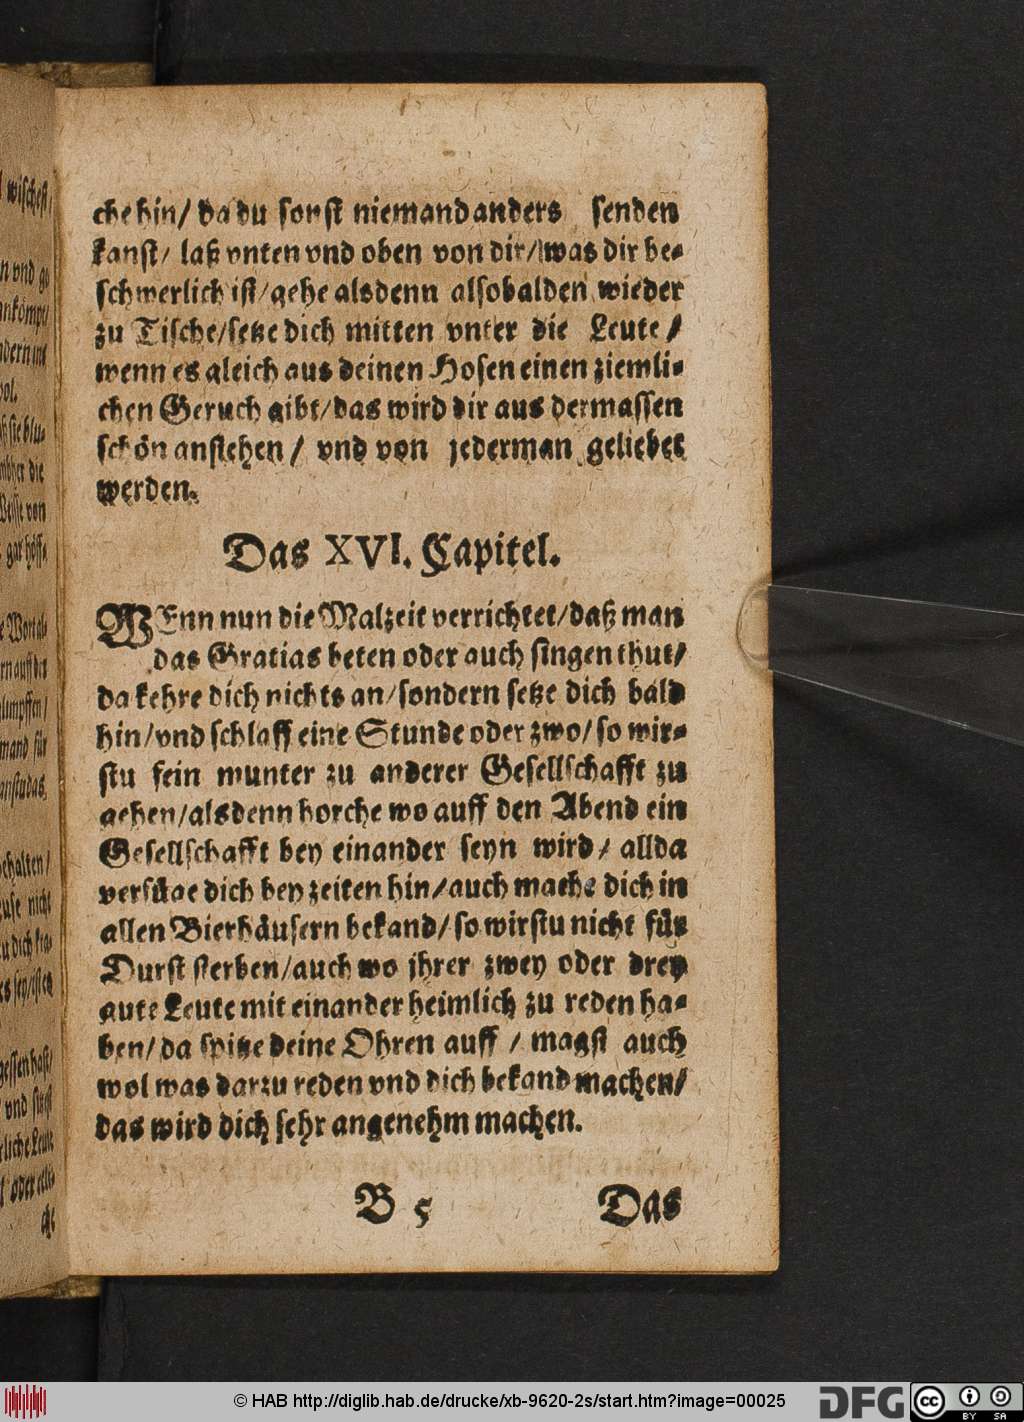 che hin/ da du sonst niemand anders senden
kanst/ laß vnten vnd oben von dir/ was dir be-
schwerlich ist/ gehe alsdenn alsobalden wieder
zu Tische/ setze dich mitten vnter die Leute/
wenn es gleich aus deinen Hosen einen ziemli-
chen Geruch gibt/ das wird dir aus dermassen
schön anstehen/ vnd von jederman geliebet
werden.
Das XVI. Capitel.
WEnn nun die Malzeit verrichtet/ daß man
das Gratias beten oder auch singen thut/
da kehre dich nichts an/ sondern setze dich bald
hin/ vnd schlaff eine Stunde oder zwo/ so wir-
stu fein munter zu anderer Gesellschafft zu
gehen/ alsdenn horche wo auff den Abend ein
Gesellschafft bey einander seyn wird/ allda
verfüge dich bey zeiten hin/ auch mache dich in
allen Bierhäusern bekand/ so wirstu nicht für
Durst sterben/ auch wo jhrer zwey oder drey
gute Leute mit einander heimlich zu reden ha-
ben/ da spitze deine Ohren auff/ magst auch
wol was darzu reden vnd dich bekand machen/
das wird dich sehr angenehm machen.
B 5 Das
© HAB http://diglib.hab.de/drucke/xb-9620-2s/start.htm?image=00025
DFG
cc BY SA